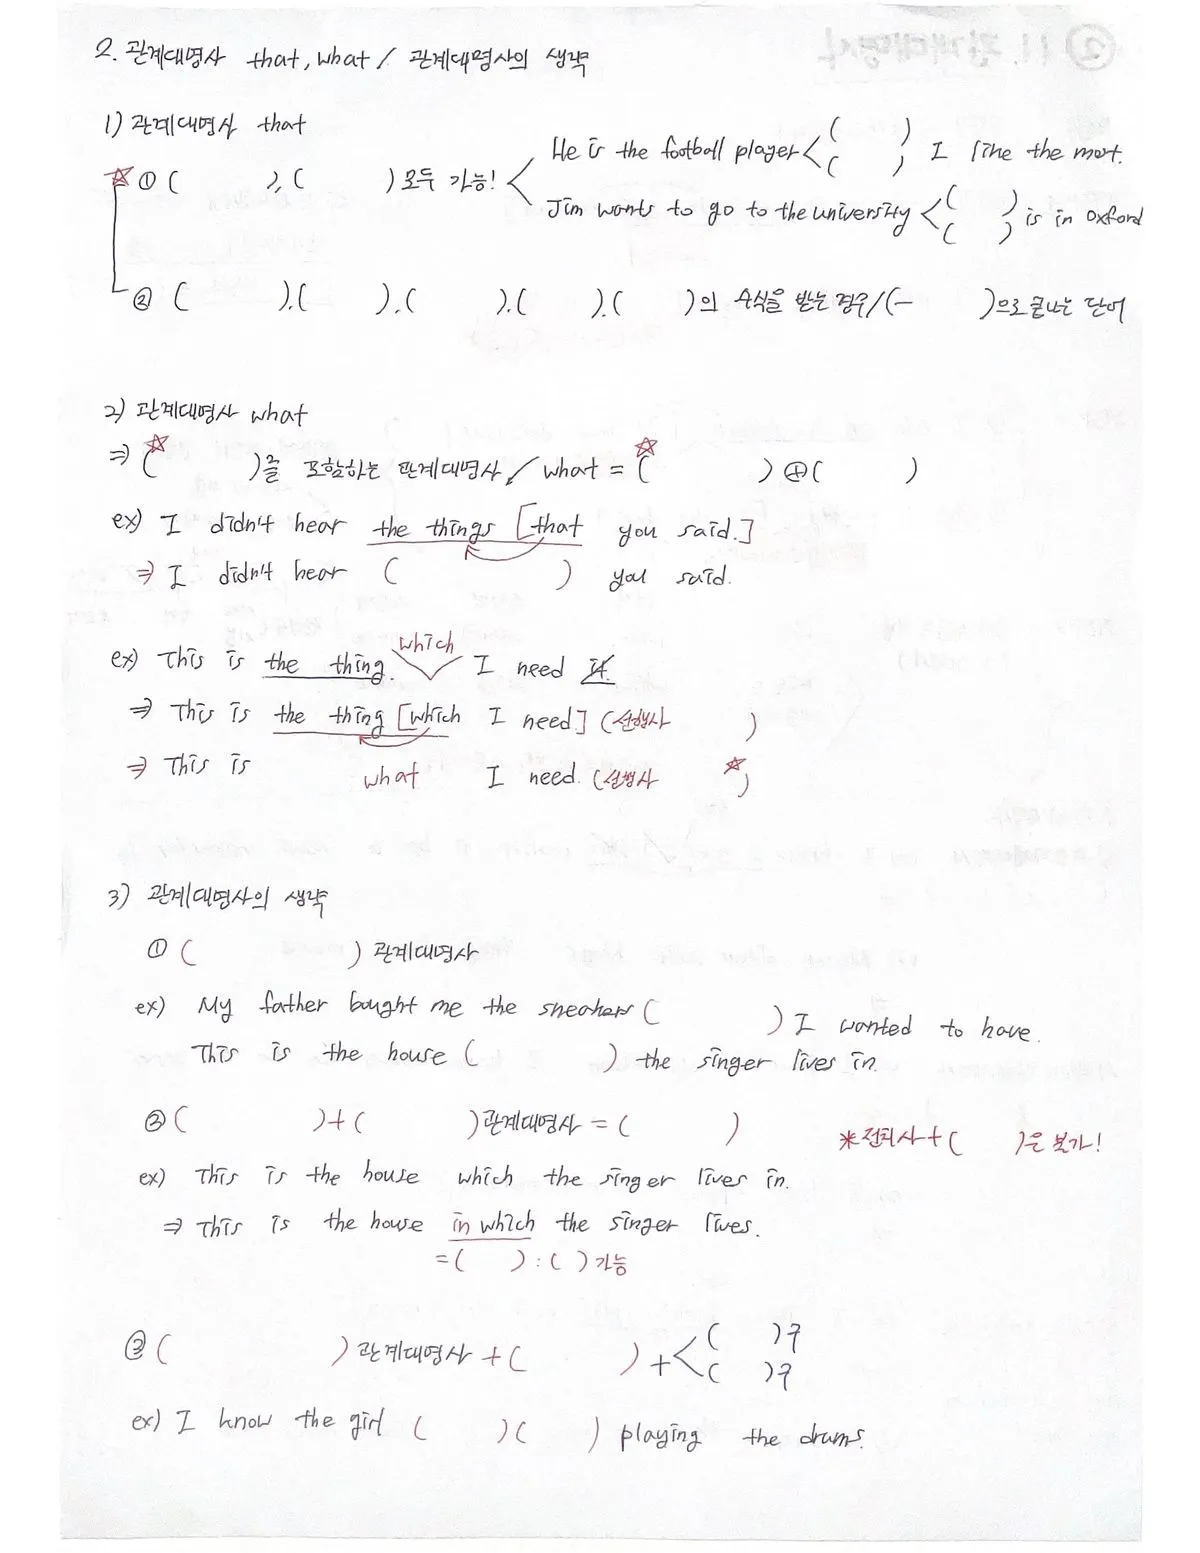 2. 관계대명사 that, what / 관계대명사의 생략
1) 관계대명사 that
☆ ① ( ), ( ) 모두 가능! < He is the football player < ( ) ( ) I like the most.
Jim wants to go to the university < ( ) ( ) is in Oxford
② ( ), ( ), ( ), ( ), ( )의 수식을 받는 경우/(- )으로 끝나는 단어
2) 관계대명사 what
⇒ (☆ )를 포함하는 관계대명사 / what = (☆ ) ⊕ ( )
ex) I didn't hear the things [that you said.]
⇒ I didn't hear ( ) you said.
ex) This is the thing. which I need it.
⇒ This is the thing [which I need] (선행사 )
⇒ This is what I need. (선행사 ☆)
3) 관계대명사의 생략
① ( ) 관계대명사
ex) My father bought me the sneakers ( ) I wanted to have.
This is the house ( ) the singer lives in.
② ( ) + ( ) 관계대명사 = ( ) *전치사 + ( )은 불가!
ex) This is the house which the singer lives in.
⇒ This is the house in which the singer lives.
= ( ) : ( ) 가능
③ ( ) 관계대명사 + ( ) + < ( )구 ( )구
ex) I know the girl ( ) ( ) playing the drums.